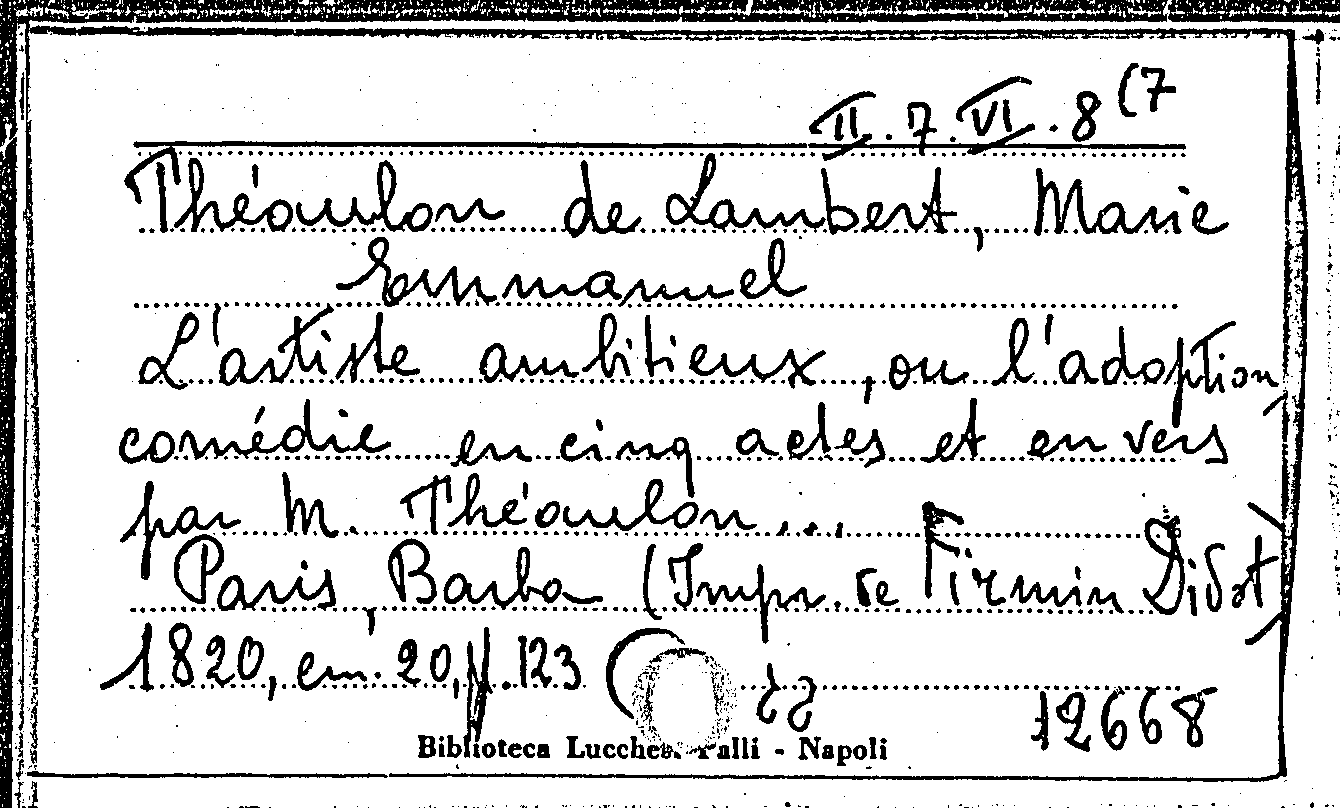 II.7.VI.8(7
Théaulon de Lambert, Marie
Emmanuel
L'artiste ambitieux, ou l'adoption,
comédie en cinq actes et en vers
par M. Théaulon...
Paris, Barba (Impr. de Firmin Didot),
1820, cm. 20, p. 123
12668
Biblioteca Lucchesi Palli - Napoli